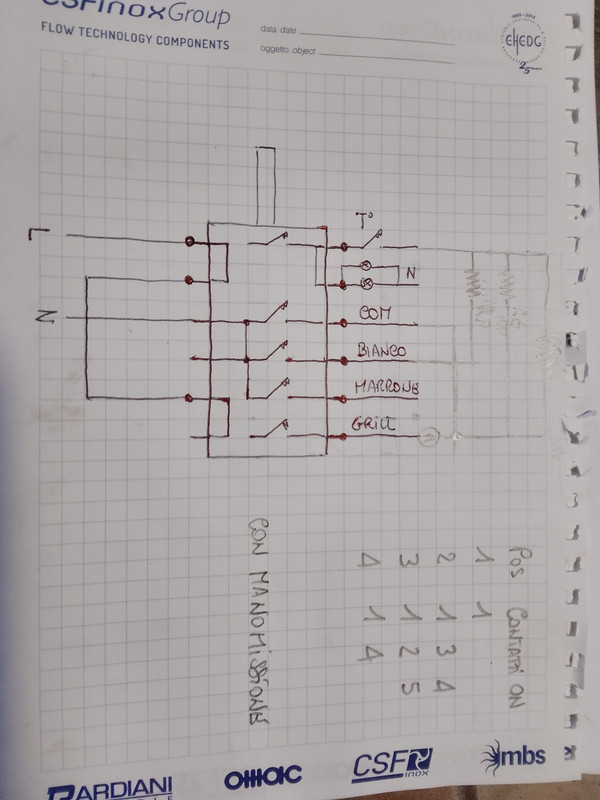 CSFinoxGroup
FLOW TECHNOLOGY COMPONENTS
data date
oggetto object
1989-2014
EHEDG
25
L
N
T°
N
COM
BIANCO
MARRONE
GRILL
POS CONTATTI ON
1 1
2 1 3 4
3 1 2 5
4 1 4
CON MANOMISSIONE
BARDIANI
OMAC
CSF inox
mbs